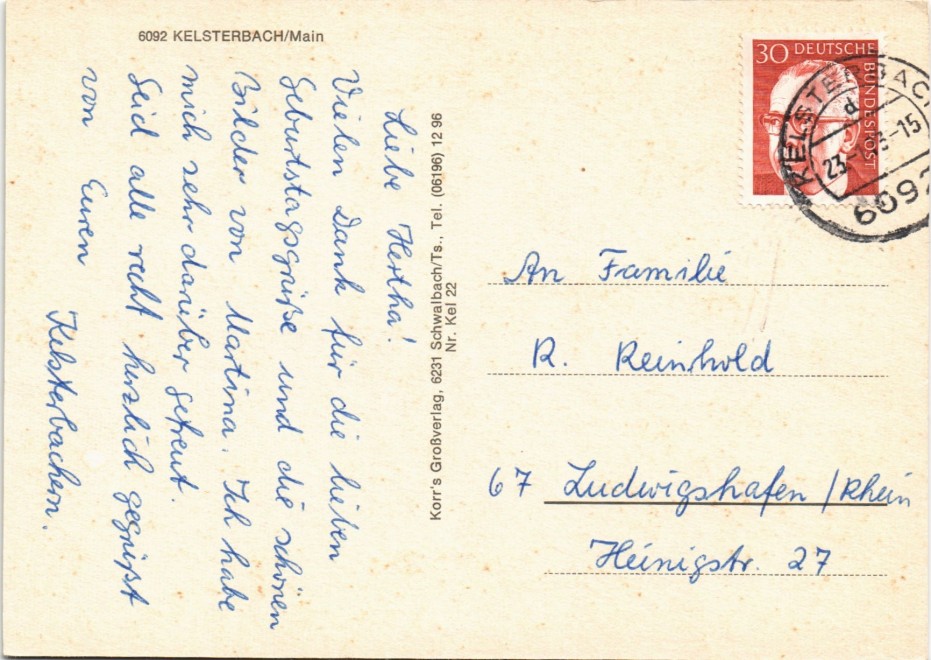 6092 KELSTERBACH/Main
Liebe Hertha!
Vielen Dank für die lieben
Geburtstagsgrüße und die schönen
Bilder von Martina. Ich habe
mich sehr darüber gefreut.
Seid alle recht herzlich gegrüßt
von Euren
Kelsterbachern.
Korr's Großverlag, 6231 Schwalbach/Ts., Tel. (06196) 12 96
Nr. Kel 22
30 DEUTSCHE
BUNDESPOST
KELSTERBACH
d
23
-15
6092
An Familie
R. Reinhold
67 Ludwigshafen/Rhein
Heinigstr. 27